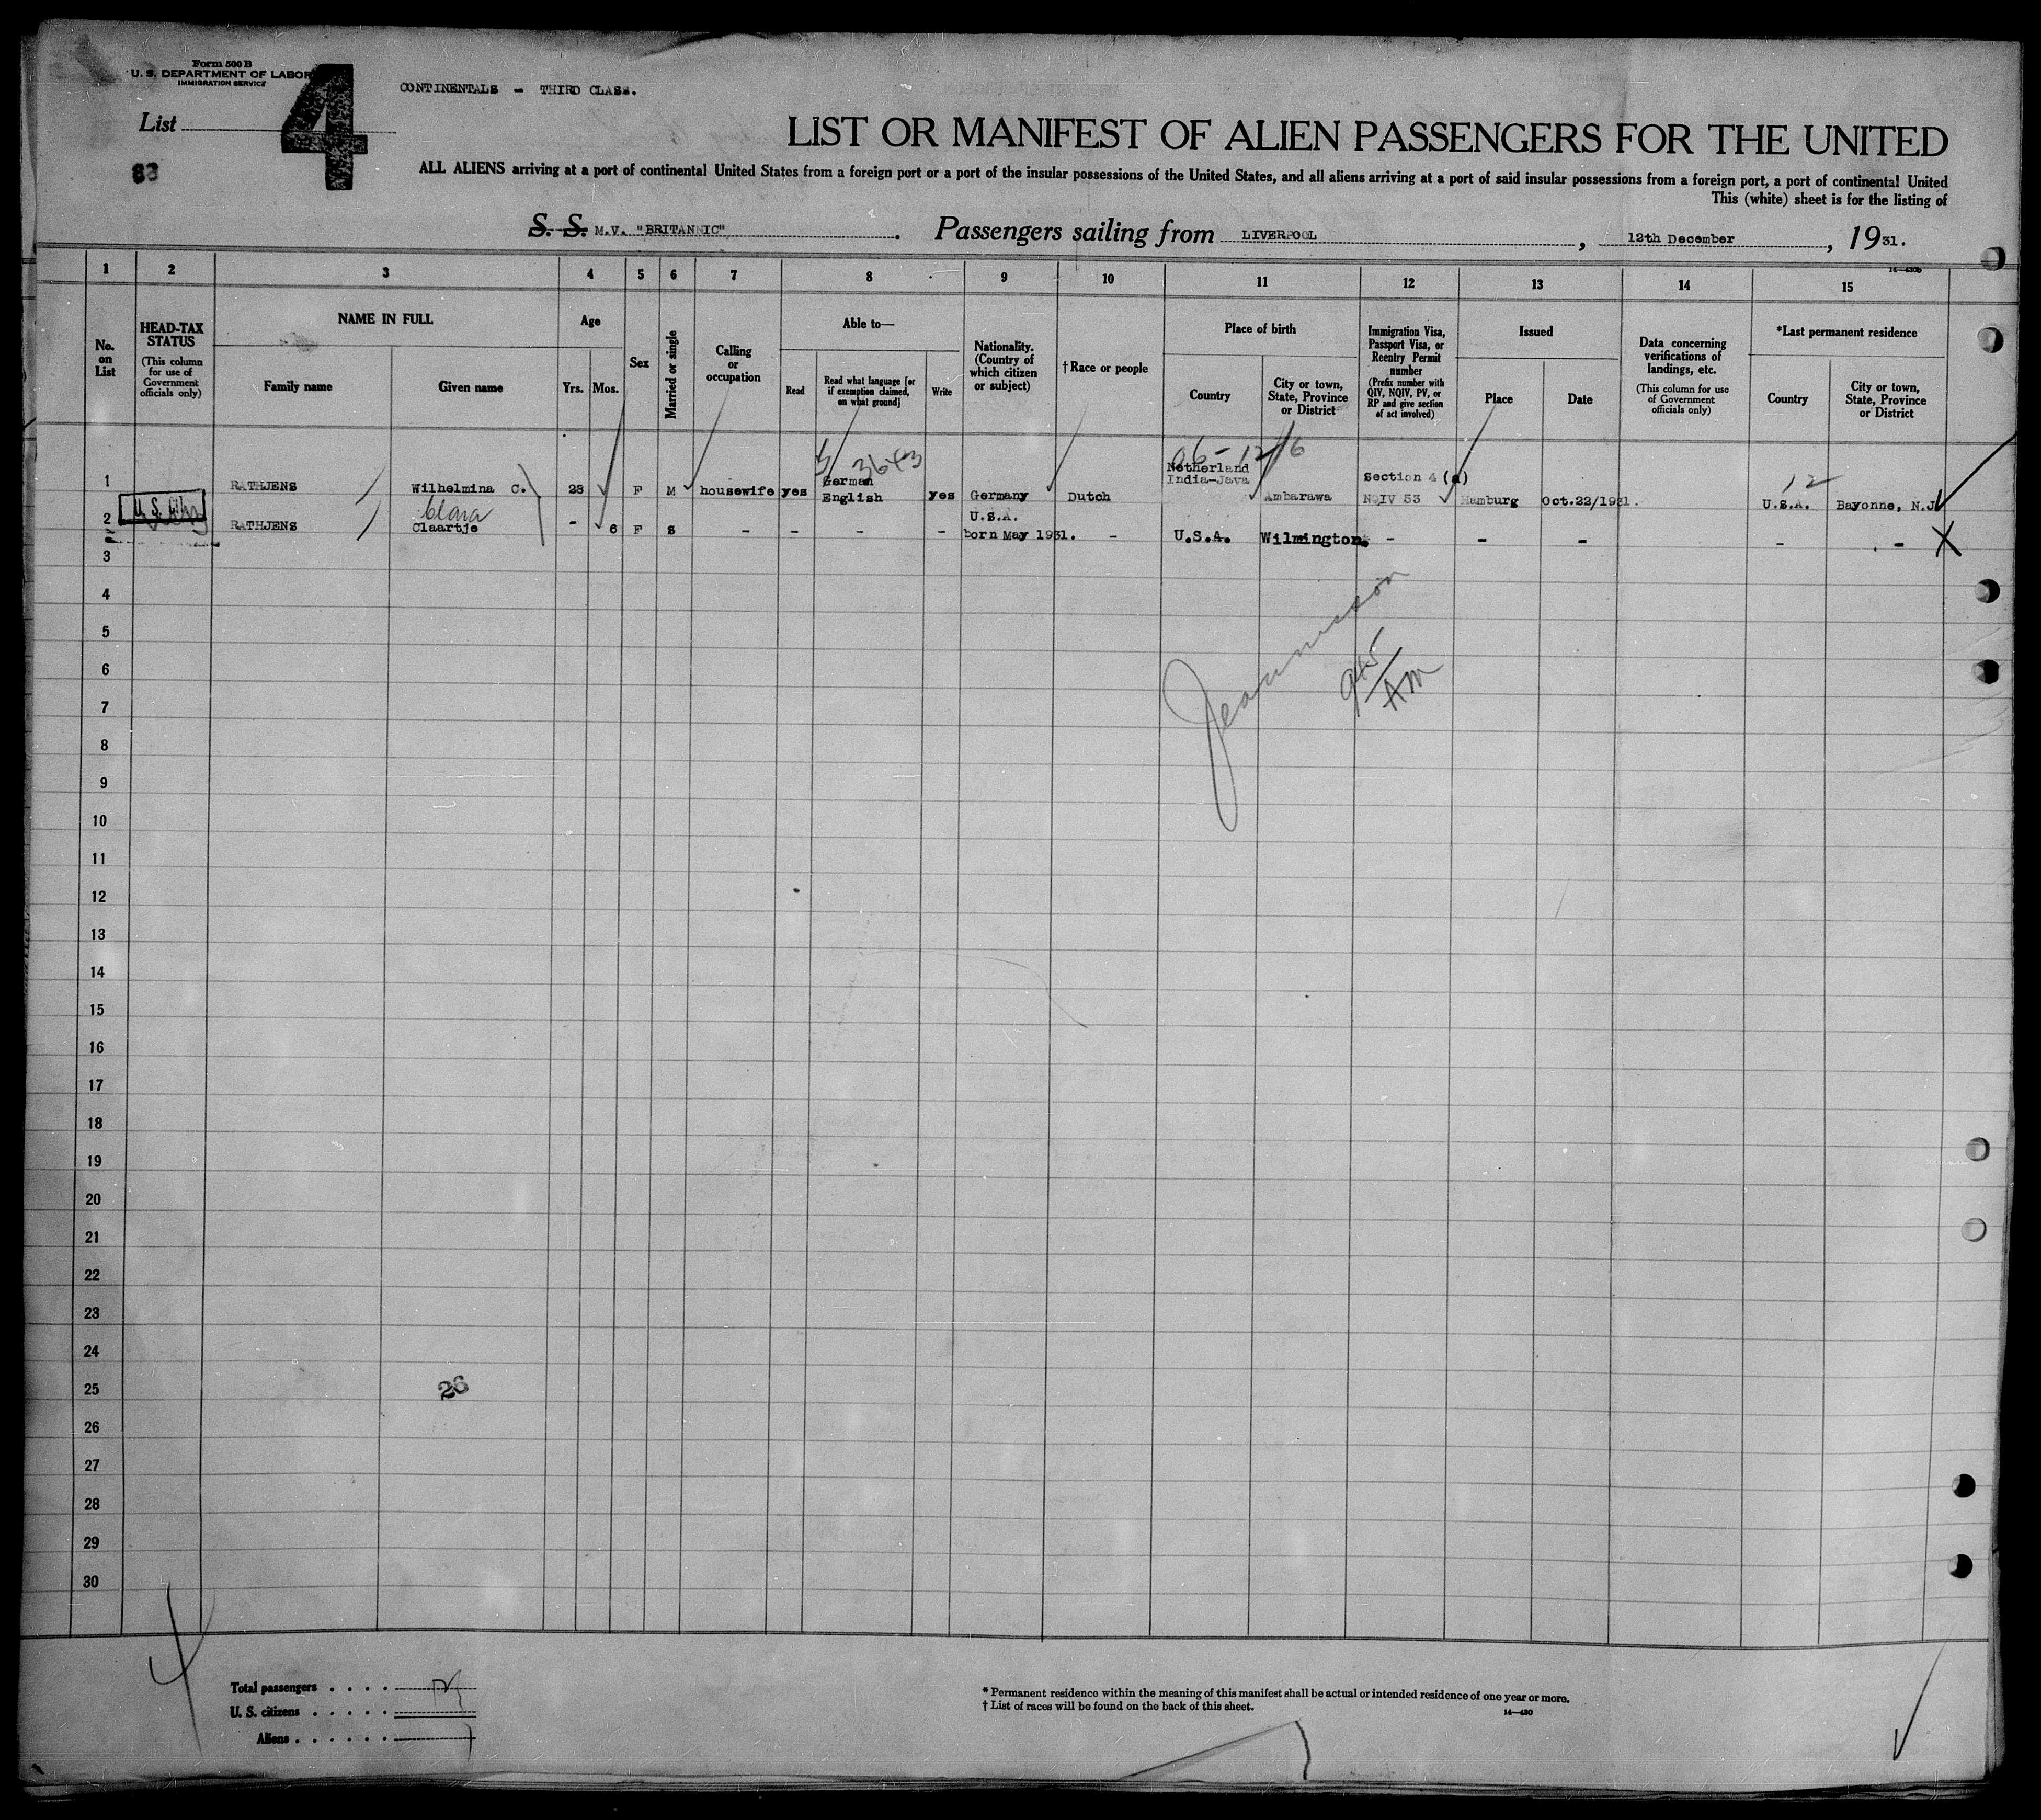 Form 500 B
U. S. DEPARTMENT OF LABOR
IMMIGRATION SERVICE
4
CONTINENTALS - THIRD CLASS.
List
83
LIST OR MANIFEST OF ALIEN PASSENGERS FOR THE UNITED
ALL ALIENS arriving at a port of continental United States from a foreign port or a port of the insular possessions of the United States, and all aliens arriving at a port of said insular possessions from a foreign port, a port of continental United
This (white) sheet is for the listing of
S. S. M.V. "BRITANNIC". Passengers sailing from LIVERPOOL, 12th December, 1931.
1 2 3 4 5 6 7 8 9 10 11 12 13 14 15
No. on List
HEAD-TAX STATUS
(This column for use of Government officials only)
NAME IN FULL
Family name
Given name
Age
Yrs.
Mos.
Sex
Married or single
Calling or occupation
Able to—
Read
Read what language [or if exemption claimed, on what ground]
Write
Nationality. (Country of which citizen or subject)
† Race or people
Place of birth
Country
City or town, State, Province or District
Immigration Visa, Passport Visa, or Reentry Permit number
(Prefix number with QIV, NQIV, PV, or RP and give section of act involved)
Issued
Place
Date
Data concerning verifications of landings, etc.
(This column for use of Government officials only)
*Last permanent residence
Country
City or town, State, Province or District
3643
12
1 RATHJENS Wilhelmina C. 28 F M housewife yes German English yes Germany Dutch Netherland India-Java Ambarawa Section 4 (a) NQIV 53 Hamburg Oct.22/1931. U.S.A. Bayonne, N.J.
Clara
2 RATHJENS Claartje - 6 F S - - - - U.S.A. born May 1931. - U.S.A. Wilmington. - - - - -
3
4
5
6
7
8
9
10
11
12
13
14
15
16
17
18
19
20
21
22
23
24
25
26
27
28
29
30
945
AM
26
Total passengers
U. S. citizens
Aliens
* Permanent residence within the meaning of this manifest shall be actual or intended residence of one year or more.
† List of races will be found on the back of this sheet.
14—430